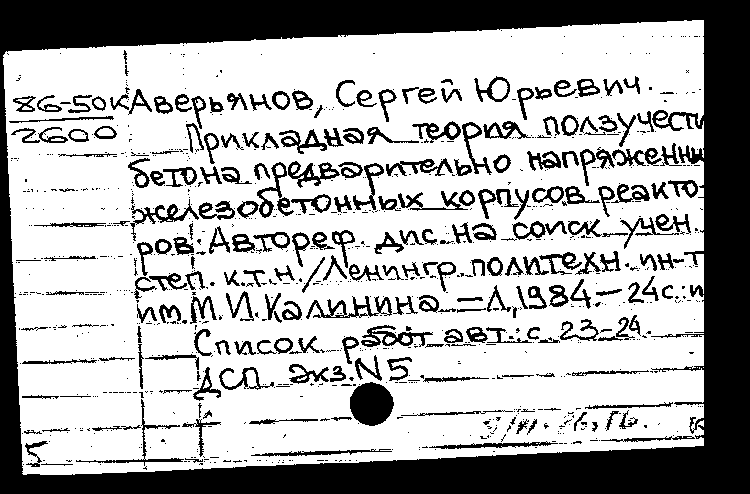 86-50к Аверьянов, Сергей Юрьевич.
2600 Прикладная теория ползучести
бетона предварительно напряженны
железобетонных корпусов реакто-
ров: Автореф. дис. на соиск. учен.
степ. к.т.н./Ленингр. политехн. ин-т
им. М.И. Калинина. — Л, 1984. — 24 с.: и
Список работ авт.: с. 23-24.
ДСП. Экз. N 5.
5